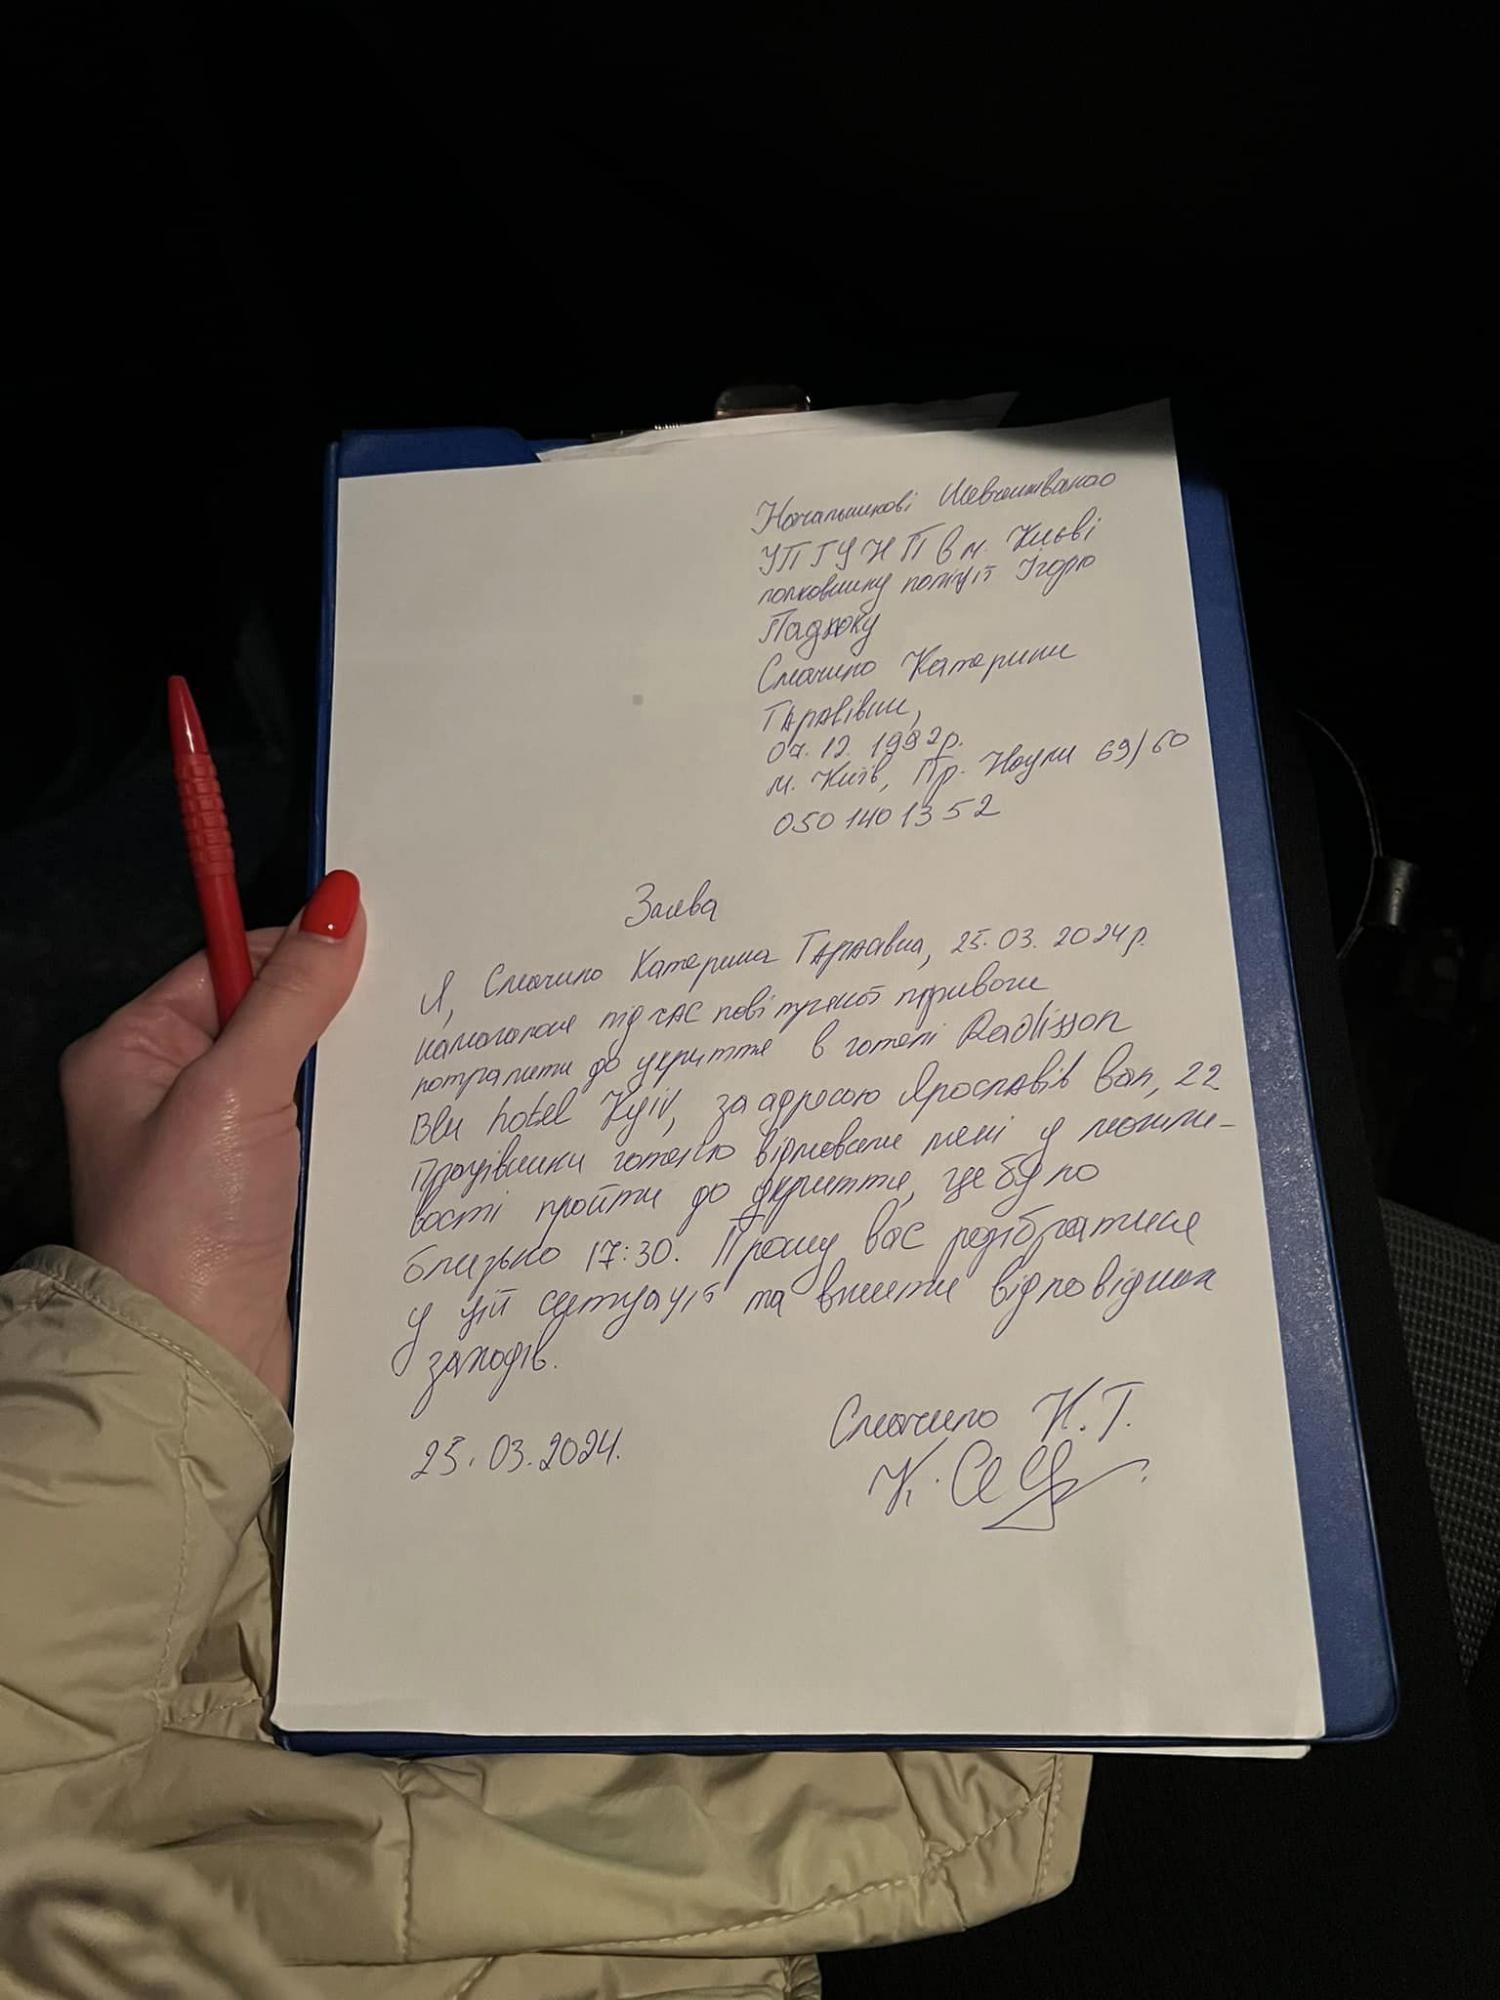 Начальникові Шевченківського
УП ГУ НП В м. Києві
полковнику поліції Ігорю
Смачило Катерини
Тарасівни,
07.12.1992р.
м. Київ, Пр. Науки 69/60
050 140 13 52
Заява
Я, Смачило Катерина Тарасівна, 25.03.2024р.
намагалася під час повітряної тривоги
потрапити до укриття в готелі Radisson
Blu hotel Kyiv, за адресою Ярославів Вал, 22
Працівники готелю відмовили мені у можли-
вості пройти до укриття, це було
близько 17:30. Прошу вас розібратися
у цій ситуації та вжити відповідних
заходів.
25.03.2024.
Смачило К.Т.